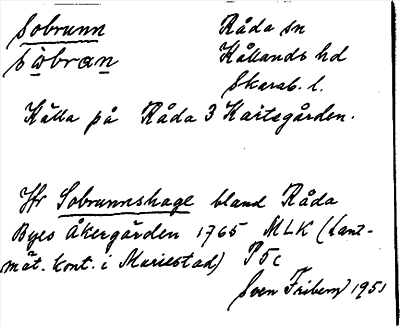 Sobrunn Råda sn
sobran Kållands hd
Skarab. l.
Källa på Råda 3 Kartsgården.
Jfr Sobrunnshage bland Råda
Byes Åkergärden 1765 MLK (Lant-
mät. kont. i Mariestad) P5c
Sven Friberg 1951